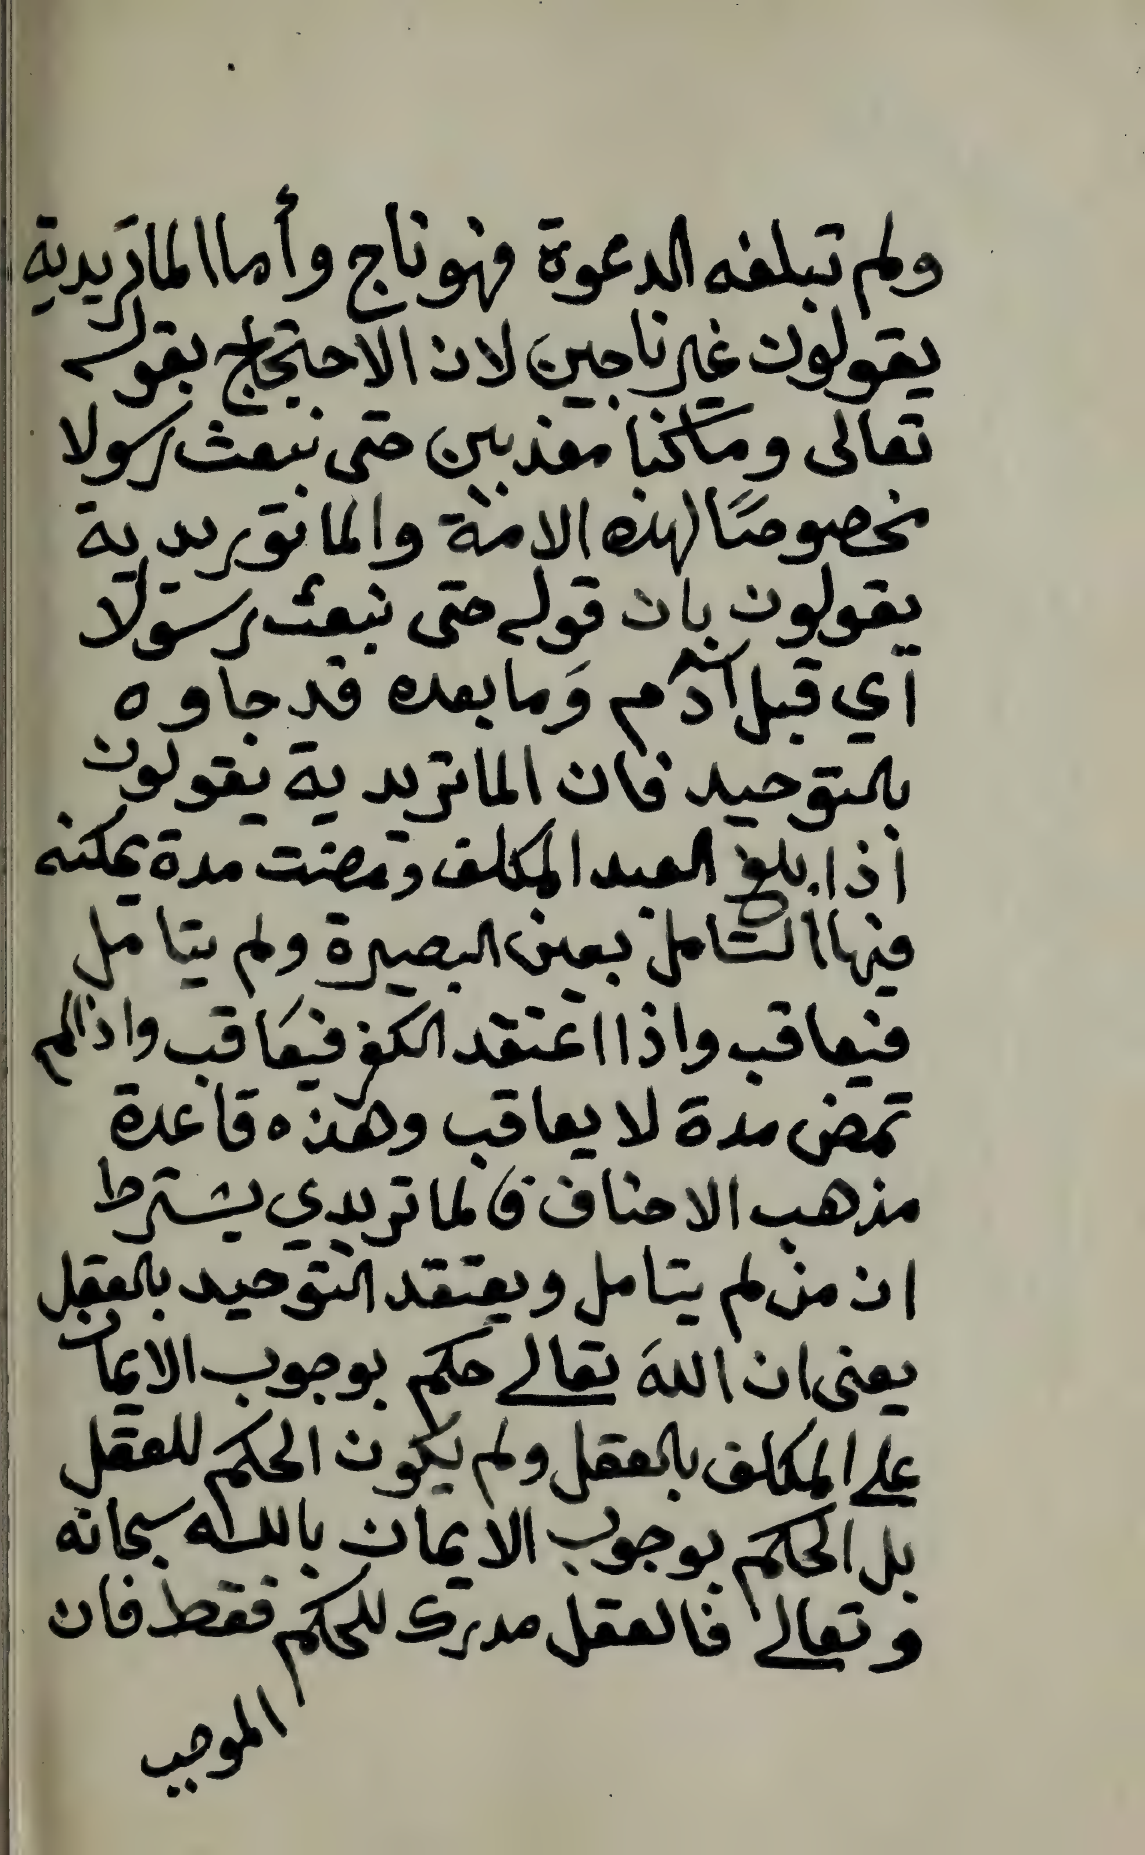 ولم تبلغه الدعوة فهو ناج وأما الماتريدية
يقولون غير ناجين لان الاحتجاج بقوله
تعالى وما كنا معذبين حتى نبعث رسولا
مخصوصًا لهذه الامة والماتوريدية
يقولون بان قوله حتى نبعث رسولا
أي قبل آدم وَما بعده قد جاوه
بالتوحيد فان الماتريدية يقولون
اذا بلغ العبد المكلف ومضت مدة يمكنه
فيها التامل بعين البصيرة ولم يتامل
فيعاقب واذا اعتقد الكفر فيعَاقب واذا لم
تمض مدة لا يعاقب وهذه قاعدة
مذهب الاحناف فالماتريدي يشترط
ان من لم يتامل ويعتقد التوحيد بالعقل
يعنى ان اللهَ تعالى حكم بوجوب الايمان
على المكلف بالعقل ولم يكون الحكم للعقل
بل الحكم بوجوب الايمان بالله سبحانه
وتعالى فالعقل مدرك للحكم فقط فان
الموجب